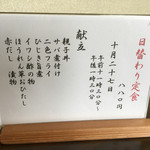 日替わり定食
八八〇円
十月二十七日
午前十一時三〇分～
午後一時三〇分
献立
親子丼
サバ煮付け
二色フライ
ひじき旨煮
イカリング酢の物
ほうれん草おひたし
赤だし　漬物